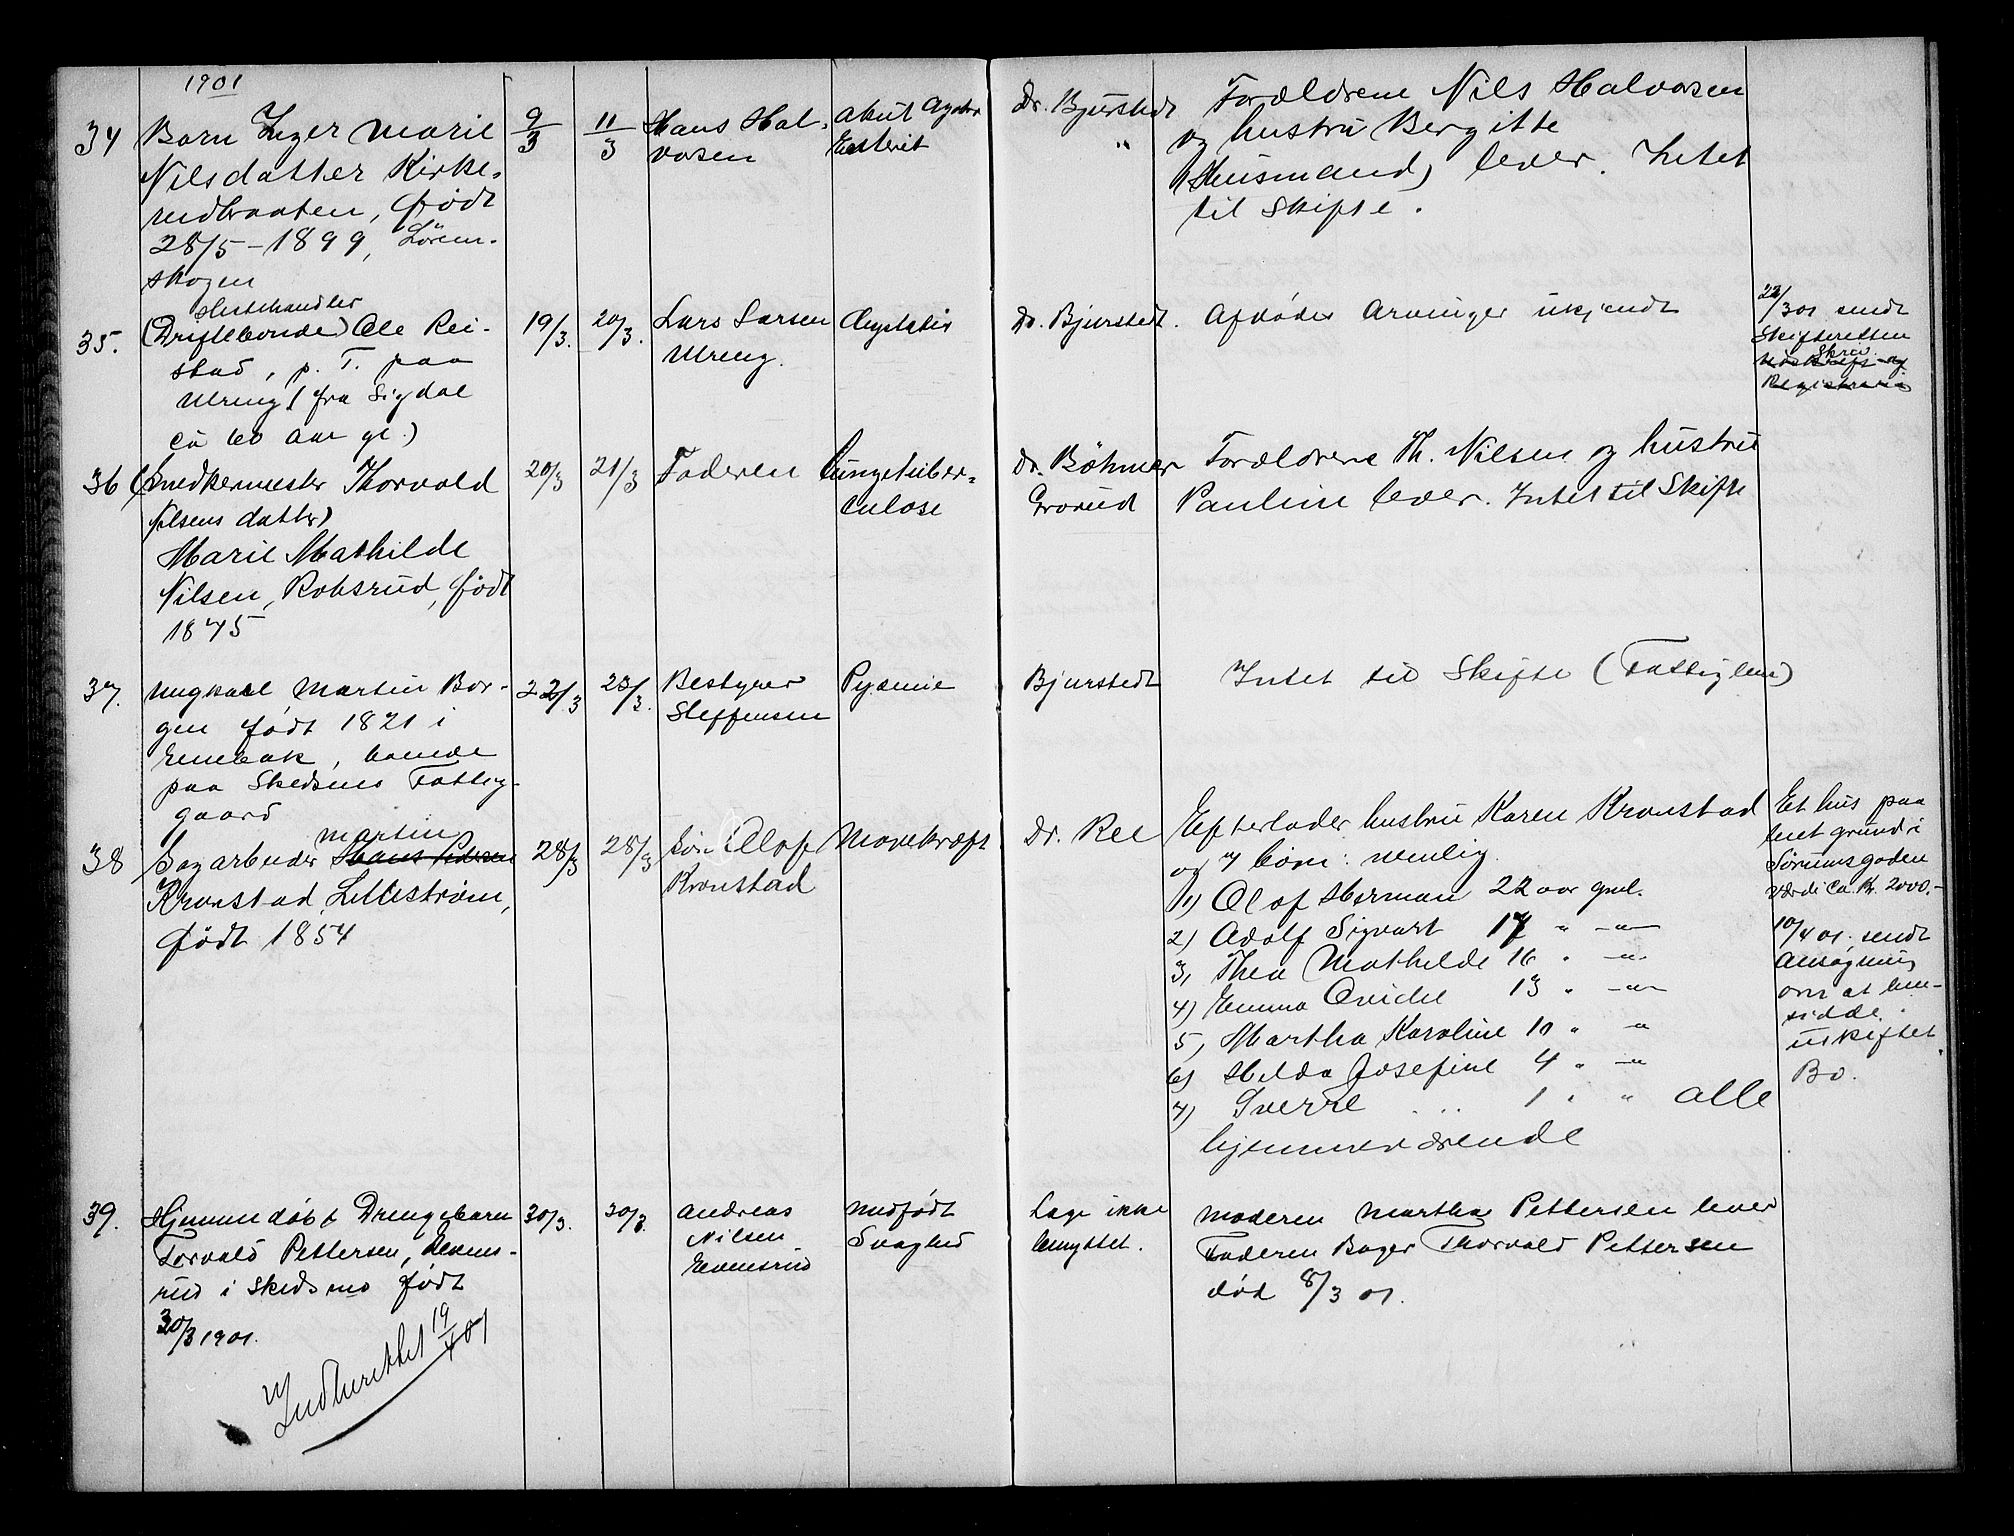 1901
34 Barn Inger Marie
Nilsdatter Kirke-
rudbraaten, født
28/5 - 1899, Lören-
skogen
9/3
11/3
Hans Hal-
vorsen
Akut
Enterit
Dr. Bjurstedt
"
Forældrene Nils Halvorsen
og hustru Bergitte
(Husmand) lever. Intet
til Skifte.
35. Hestehandler
(Driftebonde) Ole Rei-
stad, p. T. paa
Ulreng (fra Sigdal
ca 60 Aar gl.)
19/3.
20/3.
Lars Larsen
Ulreng.
Dr. Bjurstedt.
Afdödes Arvinger ukjendt
22/3 01 sendt
Skifteretten
Skrev.
og
Registrering
36 (Snedkermester Thorvald
Nilsens datter)
Marie Mathilde
Nilsen, Robsrud, født
1875
20/3
21/3
Faderen
Lungetuber-
culose
Dr. Böhmer
Grorud
Forældrene Th. Nilsen og hustru
Pauline lever. Intet til Skifte
37. Ungkarl Martin Bor-
gen født 1821 i
Enebak, boende
paa Skedsmo Fattig-
gaard
22/3
23/3.
Bestyrer
Steffensen
Pyæmie
Bjurstedt
Intet til Skifte (Fattiglem)
38 Martin
Sagarbeider Hans Pedersen
Kronstad, Lilleström,
født 1854
28/3
28/3
Sön Olof
Kronstad
Mavekræft
Dr. Ree
Efterlader hustru Karen Kronstad
og 7 börn: nemlig
1) Olaf Herman 22 aar gml.
2) Adolf Sigvart 17 " — " —
3, Thea Mathilde 16 " — " —
4) Emma Ovidie 13 " — " —
5, Martha Karoline 10 " — "
6) Hilda Josefine 4 " — "
7) Sverre . . . 1 " " alle
hjemmeværende
Et hus paa
leiet grund i
Sörumsgaden
værdi ca. Kr. 2000.-
10/4 01. sendt
Ansögning
om at hen-
sidde i
uskiftet
Bo.
39. Hjemmedöbt Drengebarn
Torvald Pettersen,
rud i Skedsmo født
30/3 1901.
30/3.
30/3.
Andreas
Nilsen
Medfødt
Svaghed
Læge ikke
benyttet.
Moderen Martha Pettersen lever
Faderen Bager Thorvald Pettersen
død 8/3 01.
Indberettet 19/4 01